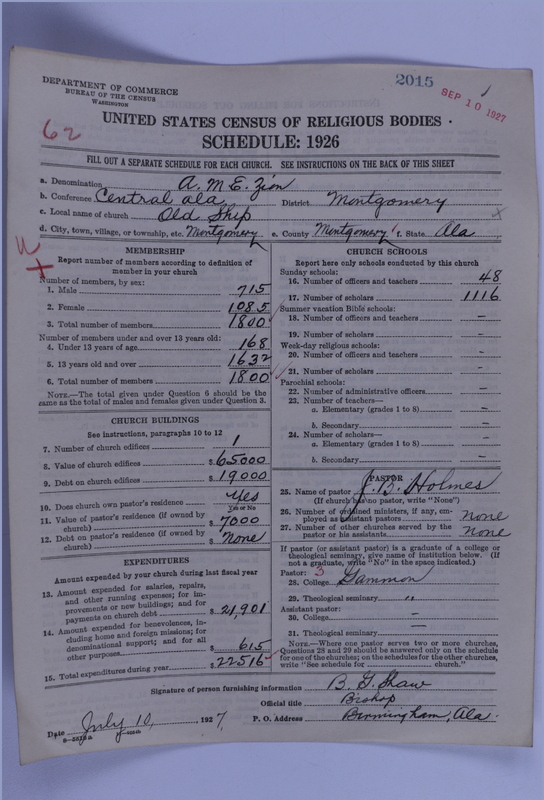 2015
SEP 10 1927
DEPARTMENT OF COMMERCE
BUREAU OF THE CENSUS
WASHINGTON
62
UNITED STATES CENSUS OF RELIGIOUS BODIES
SCHEDULE: 1926
FILL OUT A SEPARATE SCHEDULE FOR EACH CHURCH. SEE INSTRUCTIONS ON THE BACK OF THIS SHEET
a. Denomination A. M. E. Zion
b. Conference Central Ala District Montgomery
c. Local name of church Old Ship
d. City, town, village, or township, etc. Montgomery e. County Montgomery f. State Ala
MEMBERSHIP
Report number of members according to definition of
member in your church
Number of members, by sex:
1. Male 715
2. Female 1085
3. Total number of members 1800
Number of members under and over 13 years old:
4. Under 13 years of age 168
5. 13 years old and over 1632
6. Total number of members 1800
NOTE.—The total given under Question 6 should be the
same as the total of males and females given under Question 3.
CHURCH BUILDINGS
See instructions, paragraphs 10 to 12
7. Number of church edifices 1
8. Value of church edifices $65000
9. Debt on church edifices $19000
10. Does church own pastor's residence Yes
Yes or No
11. Value of pastor's residence (if owned by
church) $7000
12. Debt on pastor's residence (if owned by
church) $None
EXPENDITURES
Amount expended by your church during last fiscal year
13. Amount expended for salaries, repairs,
and other running expenses; for im-
provements or new buildings; and for
payments on church debt $21,901
14. Amount expended for benevolences, in-
cluding home and foreign missions; for
denominational support; and for all
other purposes $615
15. Total expenditures during year $22516
CHURCH SCHOOLS
Report here only schools conducted by this church
Sunday schools:
16. Number of officers and teachers 48
17. Number of scholars 1116
Summer vacation Bible schools:
18. Number of officers and teachers —
19. Number of scholars —
Week-day religious schools:
20. Number of officers and teachers —
21. Number of scholars —
Parochial schools:
22. Number of administrative officers —
23. Number of teachers—
a. Elementary (grades 1 to 8) —
b. Secondary —
24. Number of scholars—
a. Elementary (grades 1 to 8) —
b. Secondary —
PASTOR
25. Name of pastor J. B. Holmes
(If church has no pastor, write "None")
26. Number of ordained ministers, if any, em-
ployed as assistant pastors None
27. Number of other churches served by the
pastor or his assistants None
If pastor (or assistant pastor) is a graduate of a college or
theological seminary, give name of institution below. (If
not a graduate, write "No" in the space indicated.)
Pastor: 3
28. College Gammon
29. Theological seminary "
Assistant pastor:
30. College —
31. Theological seminary —
NOTE.—Where one pastor serves two or more churches,
Questions 28 and 29 should be answered only on the schedule
for one of the churches; on the schedules for the other churches,
write "See schedule for church."
Signature of person furnishing information B. G. Shaw
Official title Bishop
Date July 10, 1927. P. O. Address Birmingham, Ala.